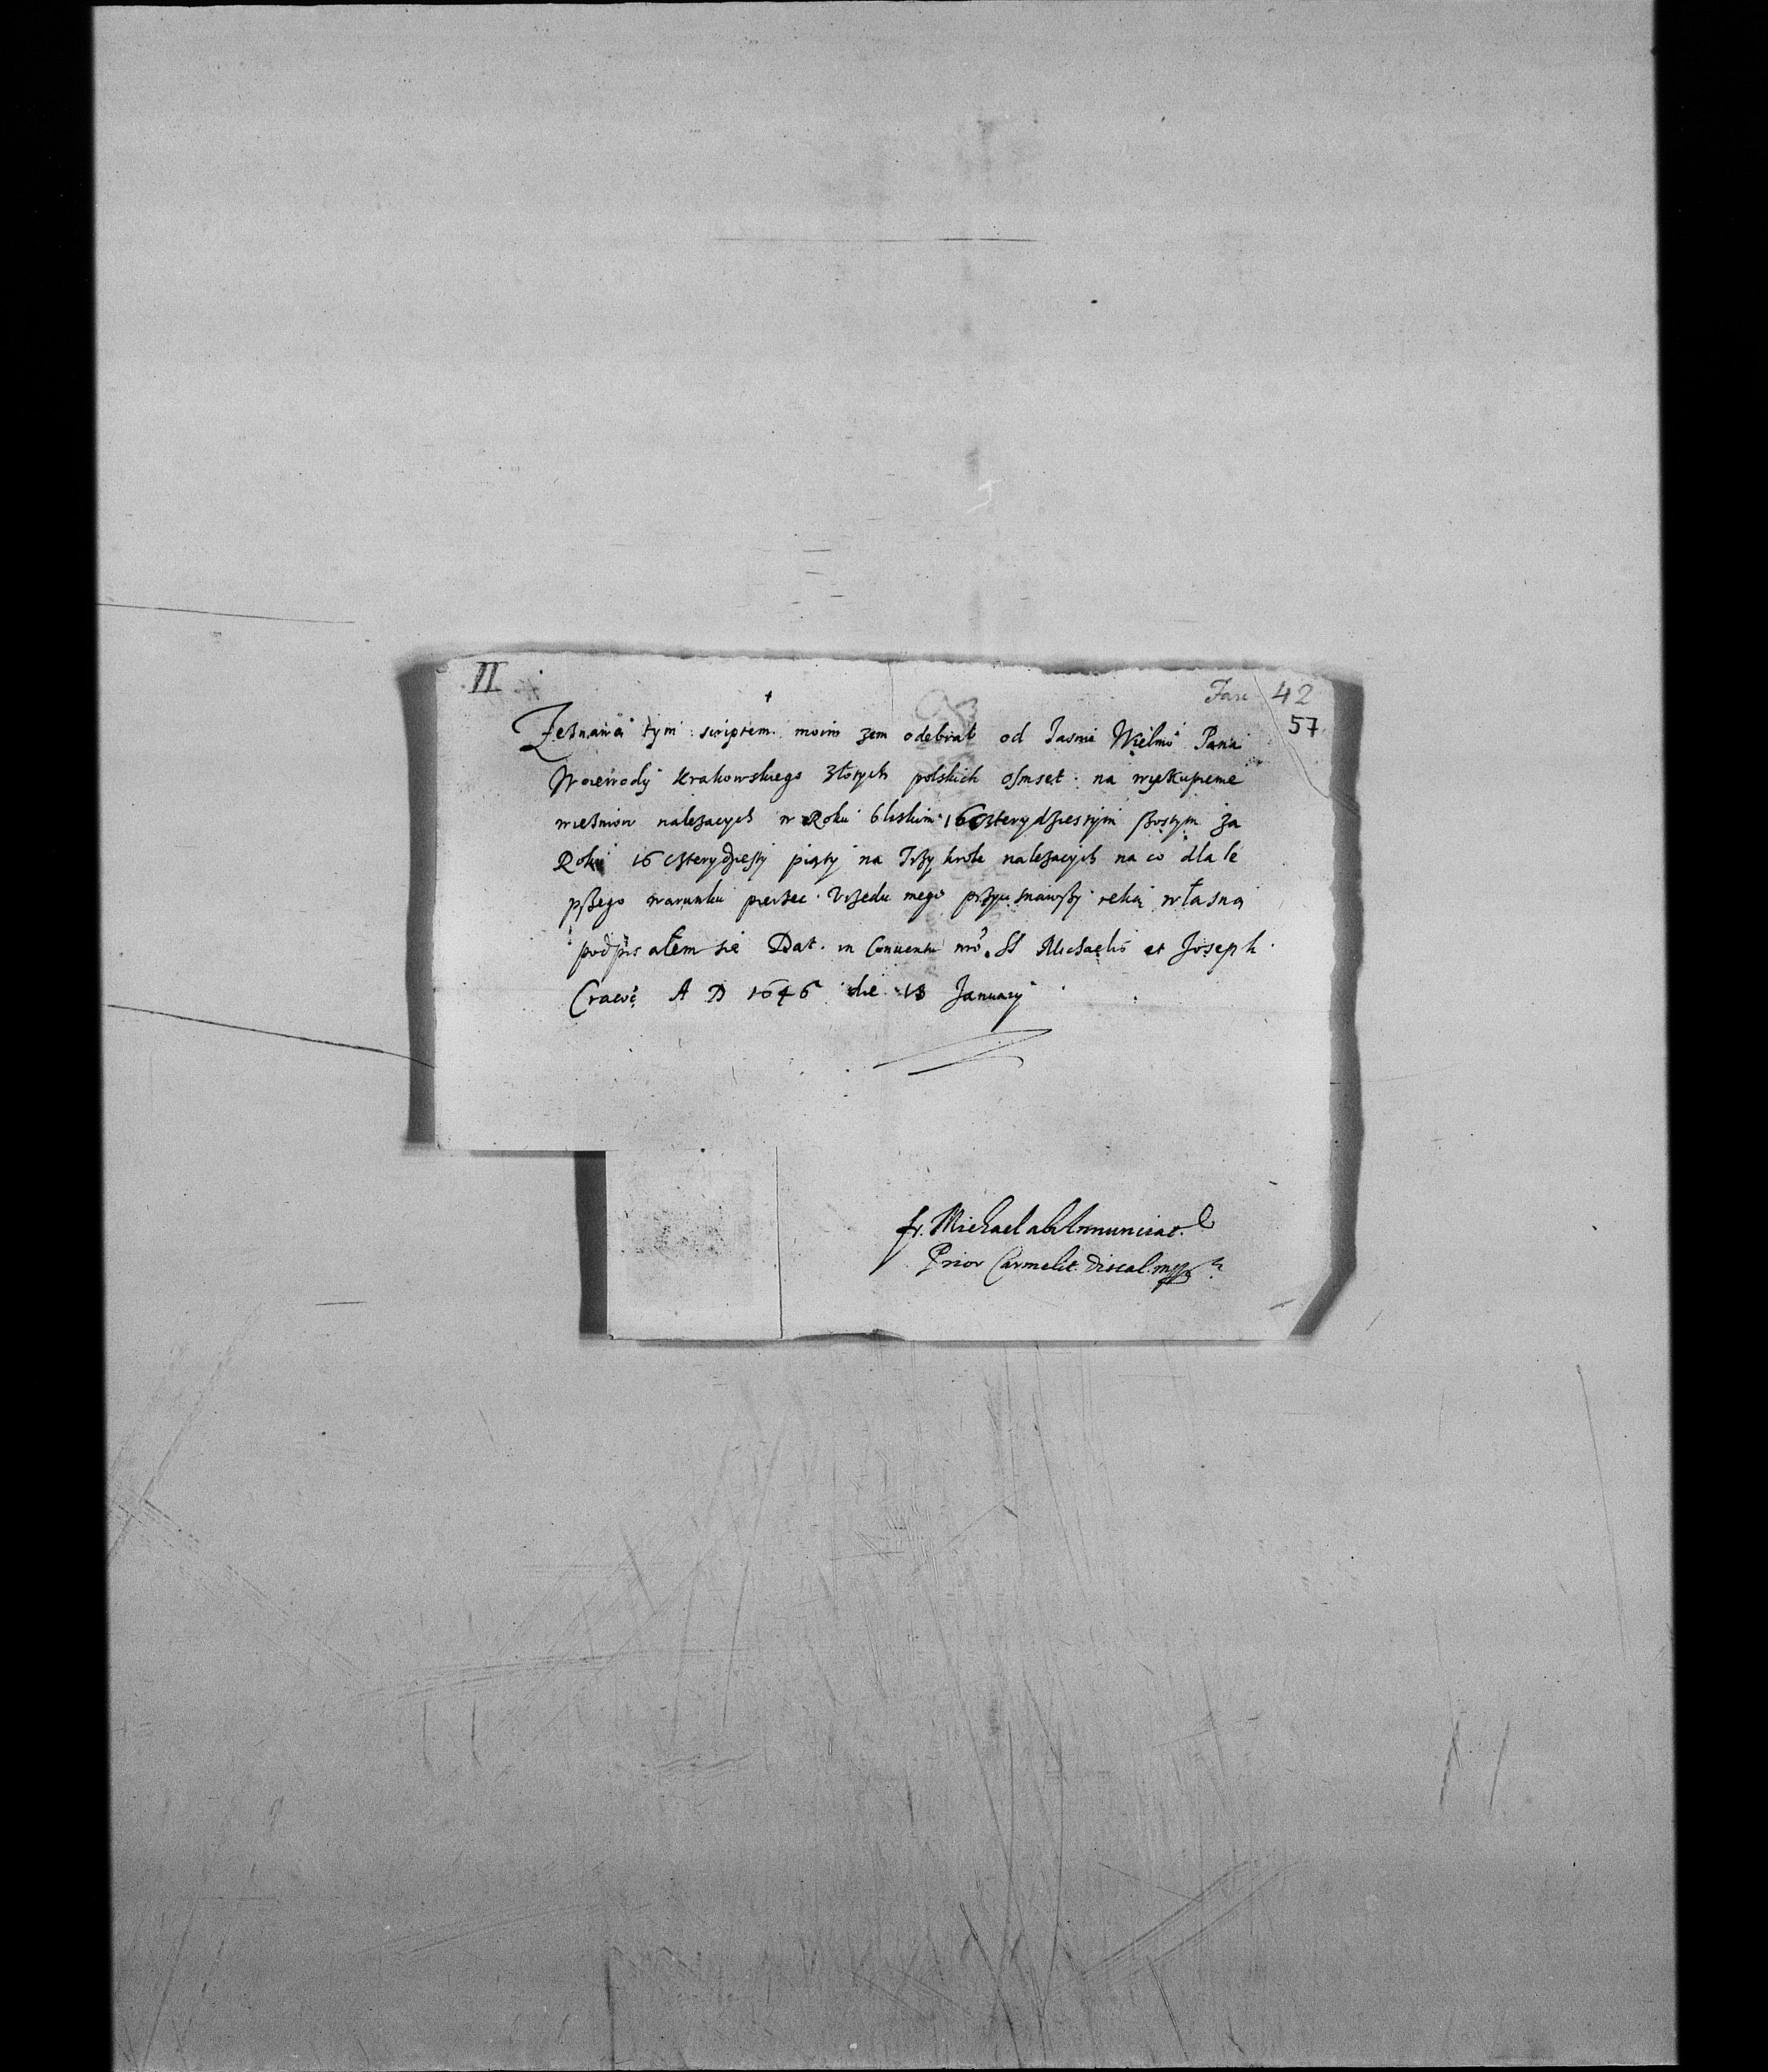 II
Fasc 42
57
+
Zeznawa tym scriptem moim zem odebrał od Jasnie Wielmo Pana
Woiewody Krakowskiego złotych polskich osmset na wyekupienie
wiezniow nalezacych w Roku bliskim 16 czterydziestym szostym za
Roku 16 czterydziesty piąty na Trzy krole nalezacych na co dla le
pszego warunku pieczec Vrzedu mego przycisnawszy reką własną
podpis ałem sie Dat. in Conuentu nro. SS Michaelis et Joseph
Cracoe A D 1646 die 18 January
fr. Michael ab Annunciat.
Prior Carmelit. discal. mpp